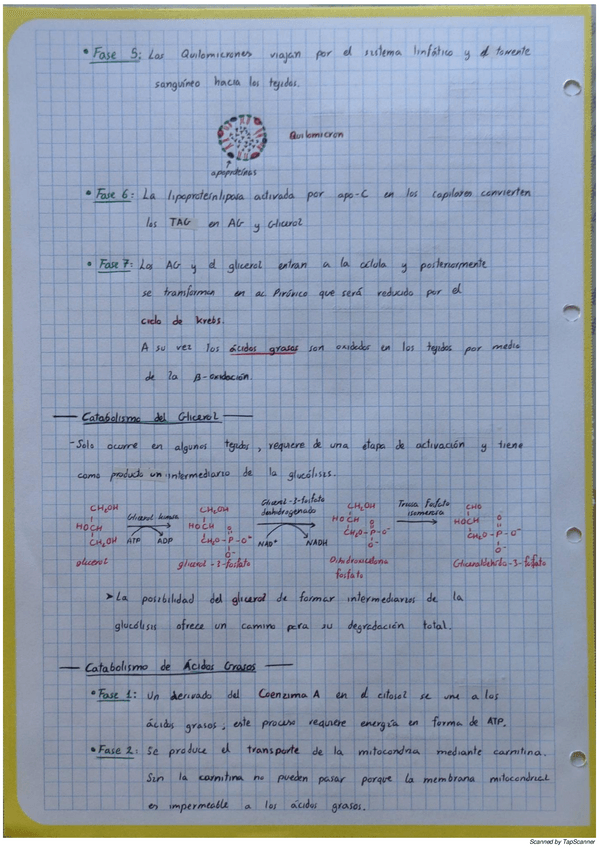 • Fase 5: Los Quilomicrones viajan por el sistema linfático y el torrente
sanguíneo hacia los tejidos.
Quilomicron
apoproteínas
• Fase 6: La lipoproteínlipasa activada por apo-C en los capilares convierten
los TAG en AG y Glicerol
• Fase 7: Los AG y el glicerol entran a la célula y posteriormente
se transforman en ac Pirúvico que será reducido por el
ciclo de Krebs.
A su vez los ácidos grasos son oxidados en los tejidos por medio
de la β-oxidación.
Catabolismo del Glicerol
- Solo ocurre en algunos tejidos, requiere de una etapa de activación y tiene
como producto un intermediario de la glucólisis.
CH₂OH
HOCH
CH₂OH
glicerol
Glicerol kinasa
ATP ADP
CH₂OH
HOCH O
CH₂O-P-O⁻
O⁻
glicerol-3-fosfato
Glicerol-3-fosfato
deshidrogenado
NAD⁺ NADH
CH₂OH
HOCH O
CH₂O-P-O⁻
O⁻
Dihidroxicetona
fosfato
Triosa fosfato
isomerasa
CHO
HOCH O
CH₂O-P-O⁻
O⁻
Gliceraldehído-3-fosfato
➤ La posibilidad del glicerol de formar intermediarios de la
glucólisis ofrece un camino para su degradación total.
Catabolismo de Ácidos Grasos
• Fase 1: Un derivado del Coenzima A en el citosol se une a los
ácidos grasos, este proceso requiere energía en forma de ATP.
• Fase 2: Se produce el transporte de la mitocondria mediante carnitina.
Sin la carnitina no pueden pasar porque la membrana mitocondrial
es impermeable a los ácidos grasos.
Scanned by TapScanner